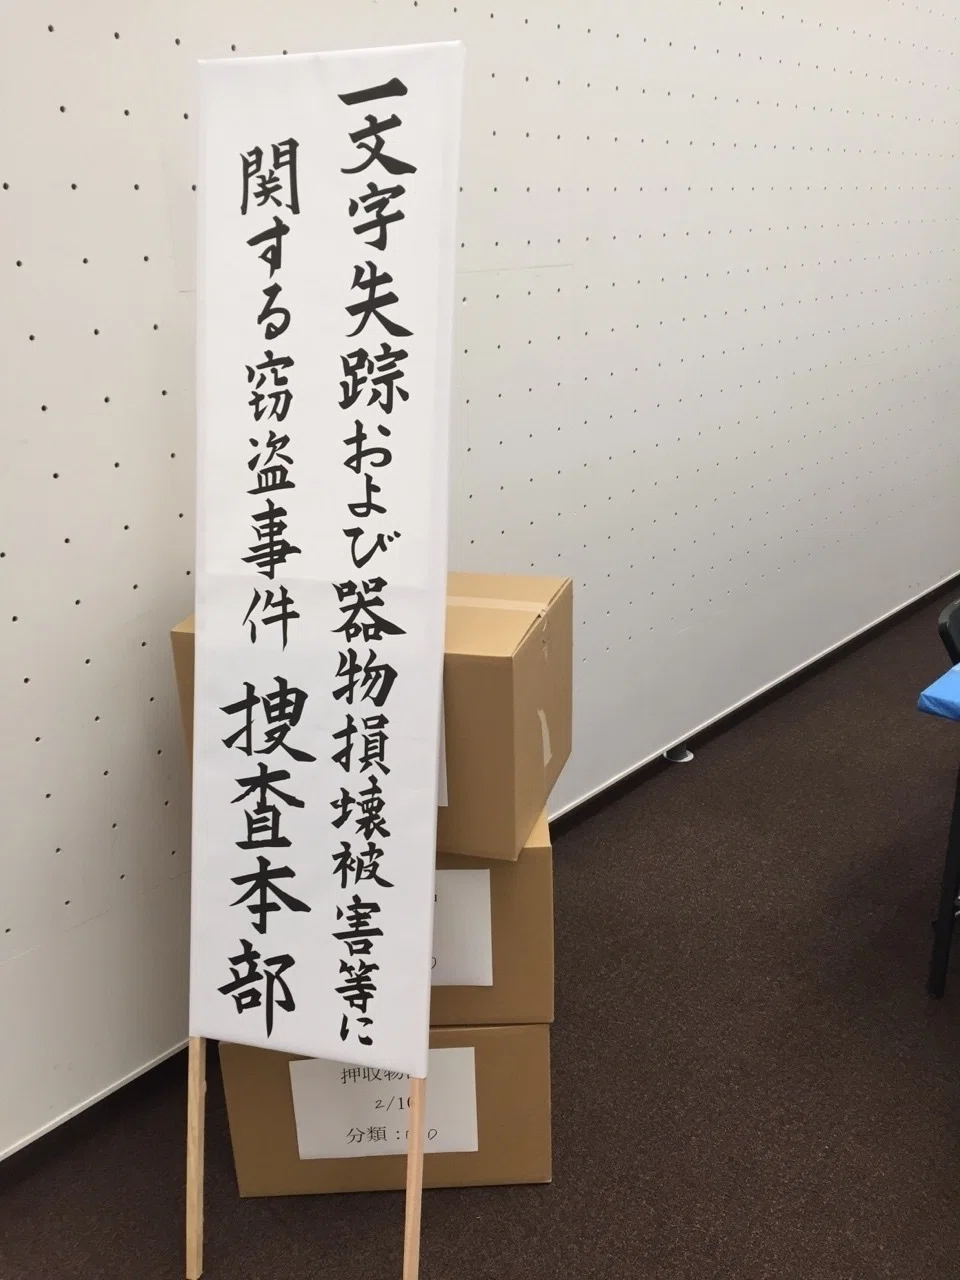 一文字失踪および器物損壊被害等に
関する窃盗事件 捜査本部
押収物
2/10
分類：